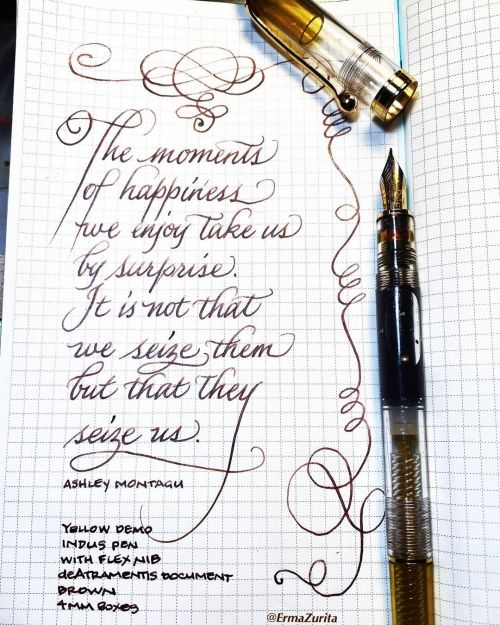 The moments
of happiness
we enjoy take us
by surprise.
It is not that
we seize them
but that they
seize us.
ASHLEY MONTAGU
YELLOW DEMO
INDUS PEN
WITH FLEX NIB
deATRAMENTIS DOCUMENT
BROWN
4MM BOXES
@ErmaZurita